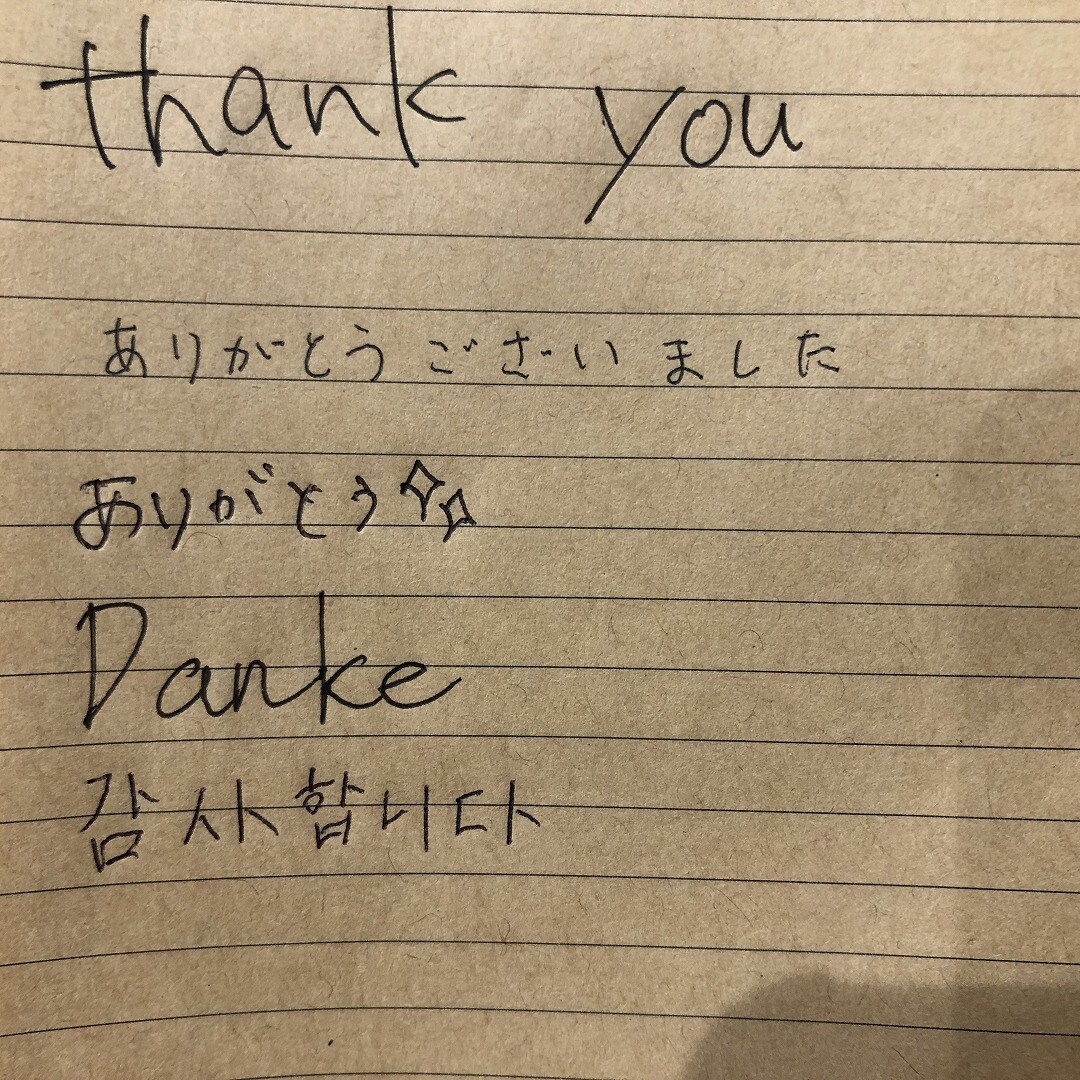 thank you
ありがとうございました
ありがとう✧✧
Danke
감사합니다